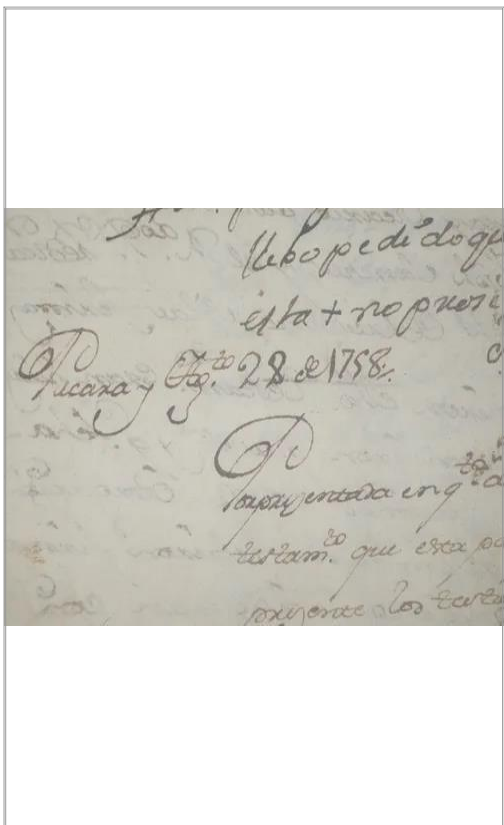 llebo pedido qu
esta + no pros
Pucara y Ag.to 28 de 1758.
Por presentada en q.to a
testam.to que esta pa
presente los testi